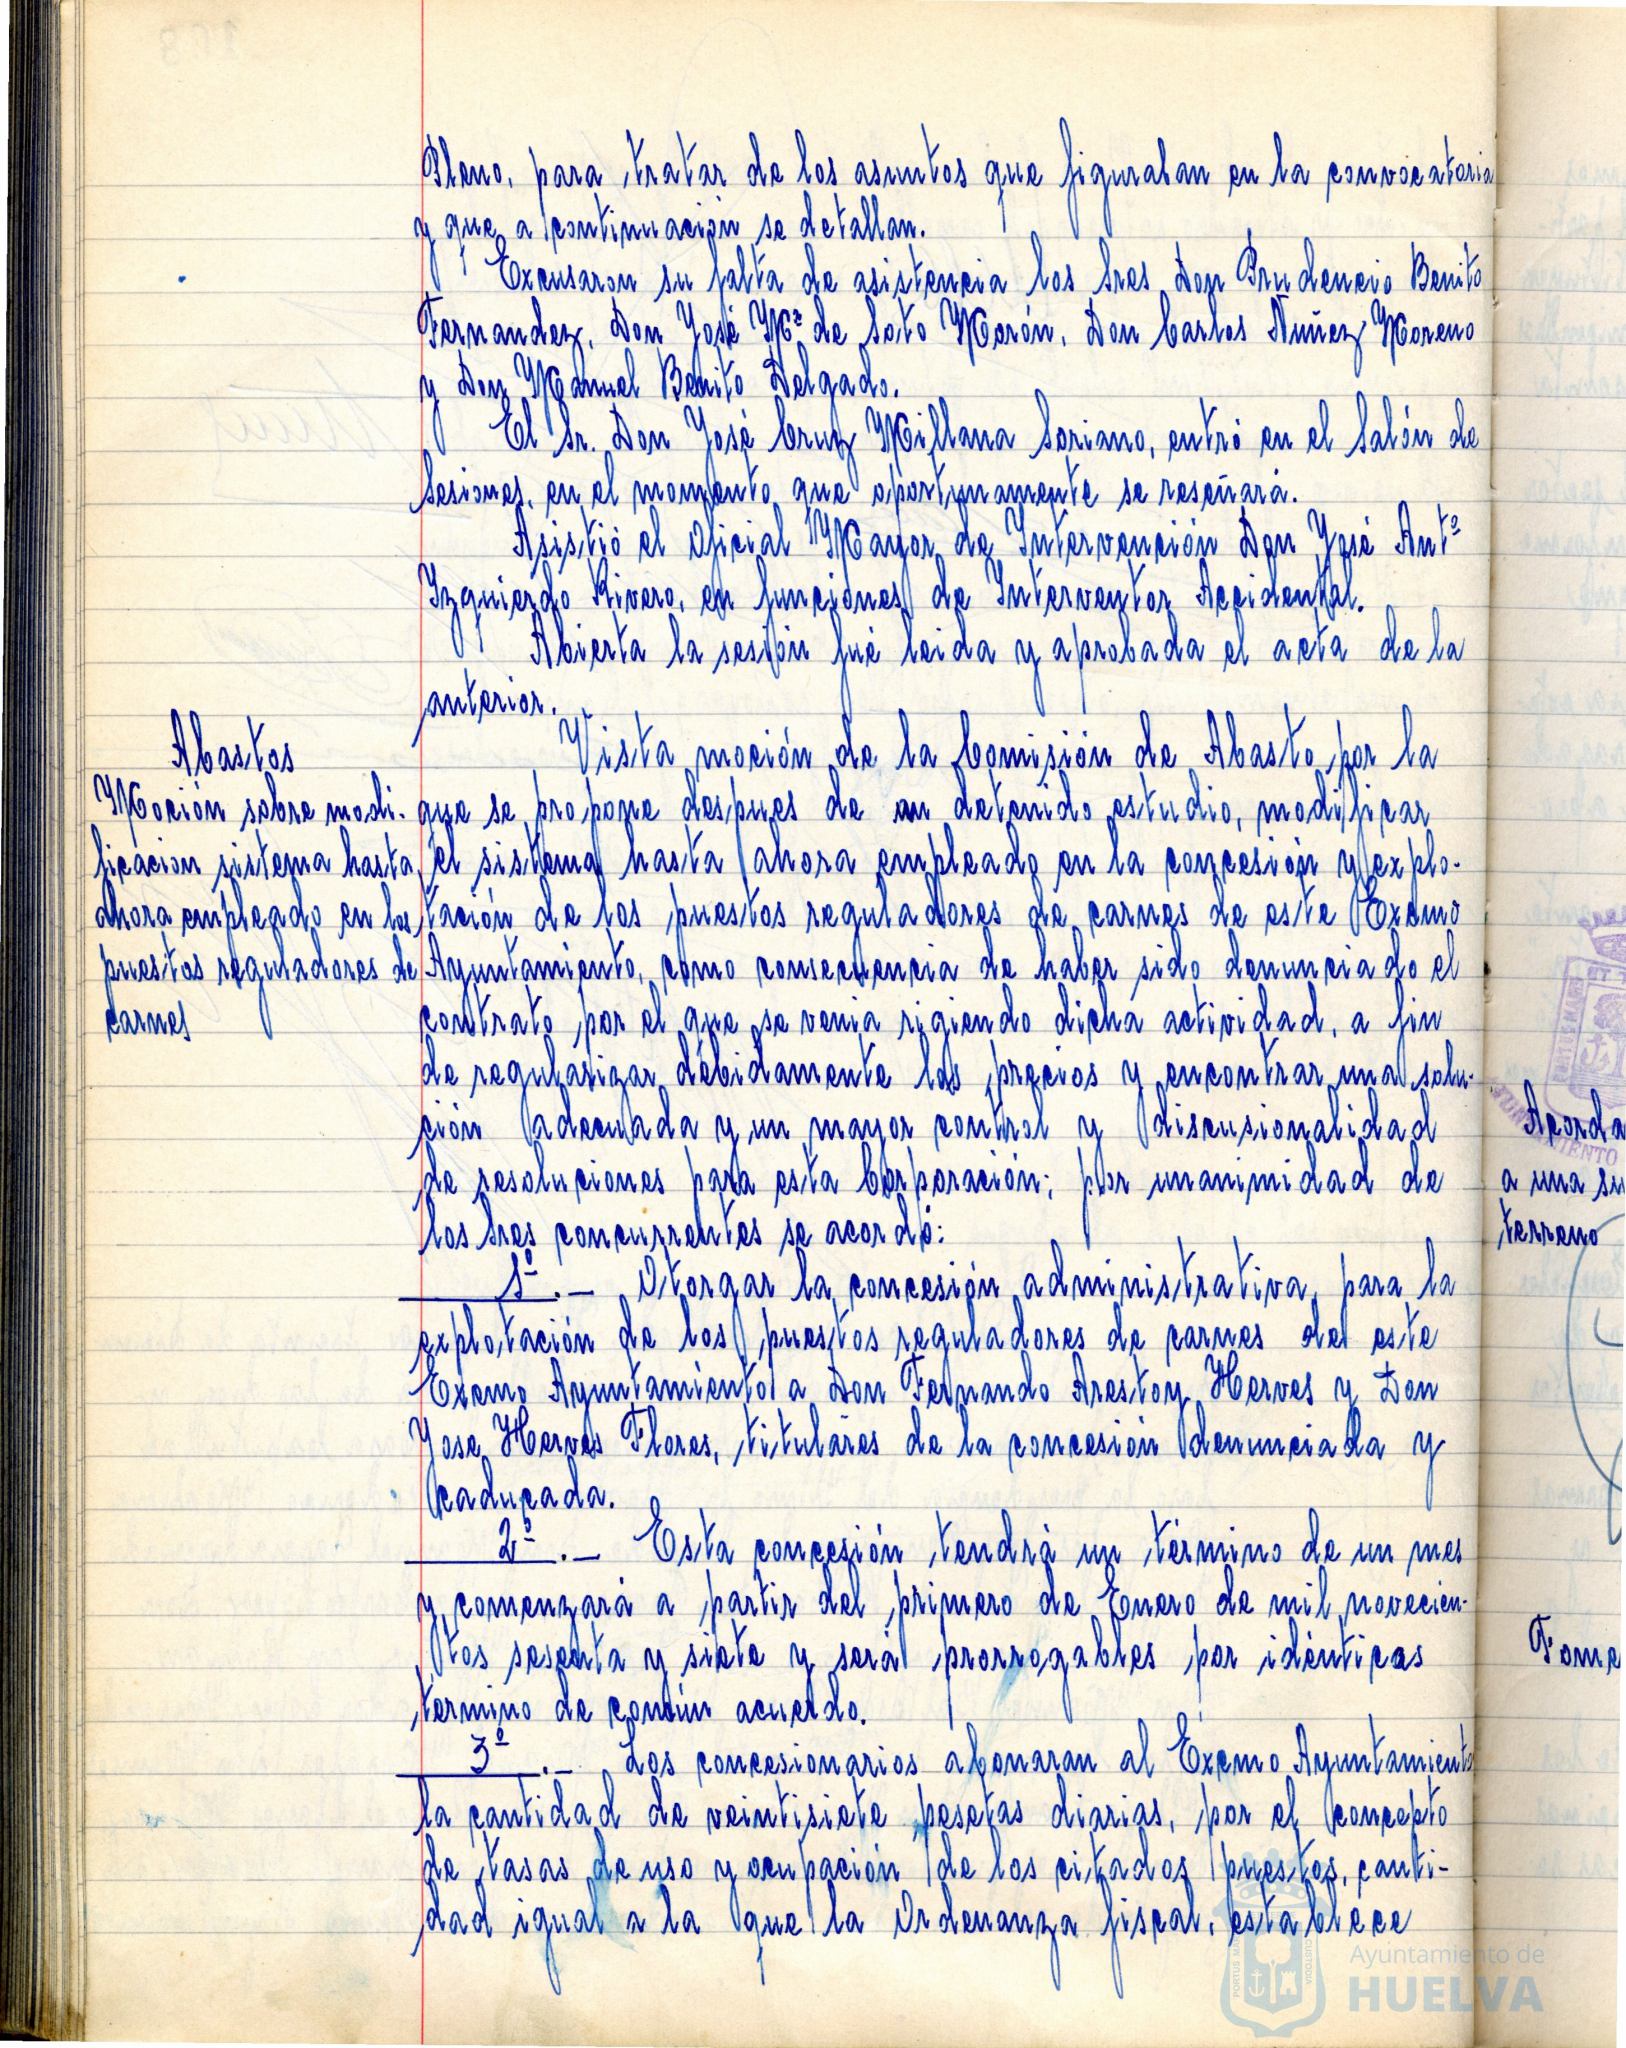 Pleno, para tratar de los asuntos que figuraban en la convocatoria
y que a continuación se detallan.
Excusaron su falta de asistencia los Sres Don Prudencio Benito
Fernandez, Don José Mª de Soto Morón, Don Carlos Nuñez Moreno
y Don Manuel Benito Delgado.
El Sr. Don José Cruz Millana Soriano, entró en el Salón de
Sesiones, en el momento que oportunamente se reseñará.
Asistió el Oficial Mayor de Intervención Don José Antº
Izquierdo Rivero, en funciones de Interventor Accidental.
Abierta la sesión fué leida y aprobada el acta de la
anterior.
Abastos
Moción sobre modi-
ficación sistema hasta
ahora empleado en los
puestos reguladores de
carnes
Vista moción de la Comisión de Abasto por la
que se propone despues de un detenido estudio, modificar
el sistema hasta ahora empleado en la concesión y explo-
tación de los puestos reguladores de carnes de este Excmo
Ayuntamiento, como consecuencia de haber sido denunciado el
contrato por el que se venia rigiendo dicha actividad, a fin
de regularizar debidamente los precios y encontrar una solu-
ción adecuada y un mayor control y discusionalidad
de resoluciones para esta Corporación; por unanimidad de
los Sres concurrentes se acordó:
1º.- Otorgar la concesión administrativa para la
explotación de los puestos reguladores de carnes de este
Excmo Ayuntamiento a Don Fernando Arestoy Herves y Don
Jose Herves Flores, titulares de la concesión denunciada y
caducada.
2º.- Esta concesión tendrá un término de un mes
y comenzará a partir del primero de Enero de mil novecien-
tos sesenta y siete y será prorrogables por idénticas
termino de común acuerdo.
3º.- Los concesionarios abonaran al Excmo Ayuntamiento
la cantidad de veintisiete pesetas diarias, por el concepto
de tasas de uso y ocupación de los citados puestos, canti-
dad igual a la que la Ordenanza fiscal, establece
Acorda
a una su
terreno
Fome
Ayuntamiento de
HUELVA